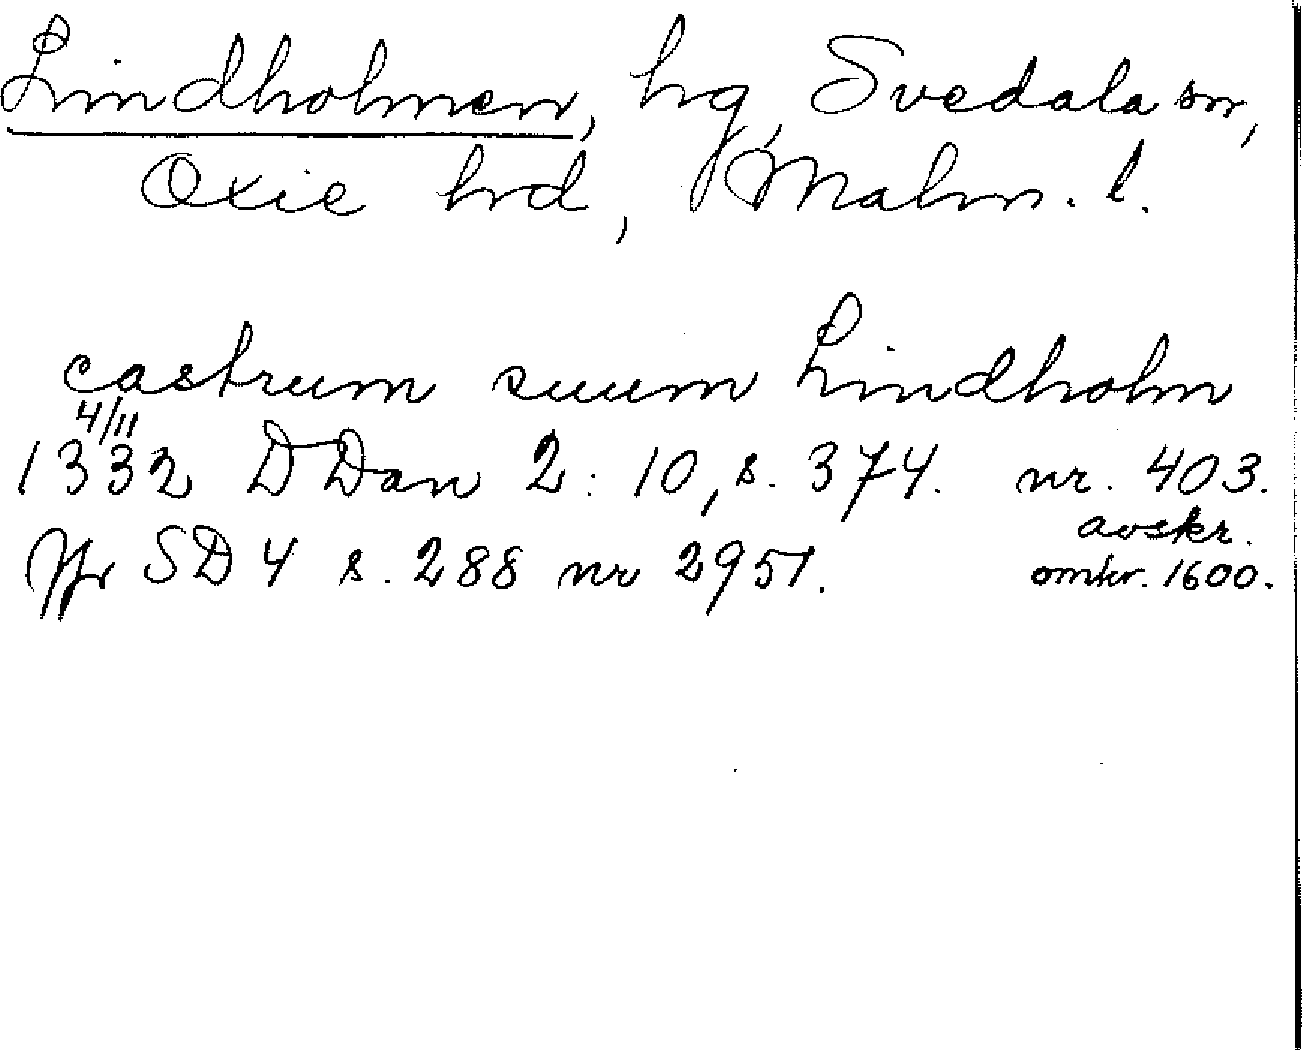 Lindholmen, hg, Svedala sn,
Oxie hrd, Malm. l.
castrum suum Lindholm
4/11
1332 DDan 2: 10, s. 374. nr. 403.
avskr.
Jfr SD 4 s. 288 nr 2951. omkr. 1600.